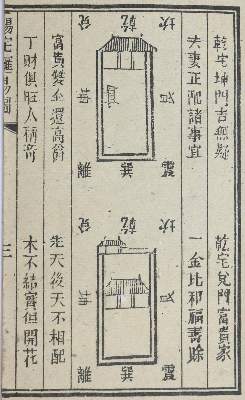 乾宅坤門吉無疑
夫妻正配諸事宜
坎 乾 兌
艮 坤
震 巽 離
富貴雙全還高爵
丁財俱旺人稱奇
乾宅兌門富貴家
一金比和福壽賒
坎 乾 兌
艮 坤
震 巽 離
先天後天不相配
木不結實但開花
陽宅 易圖
三